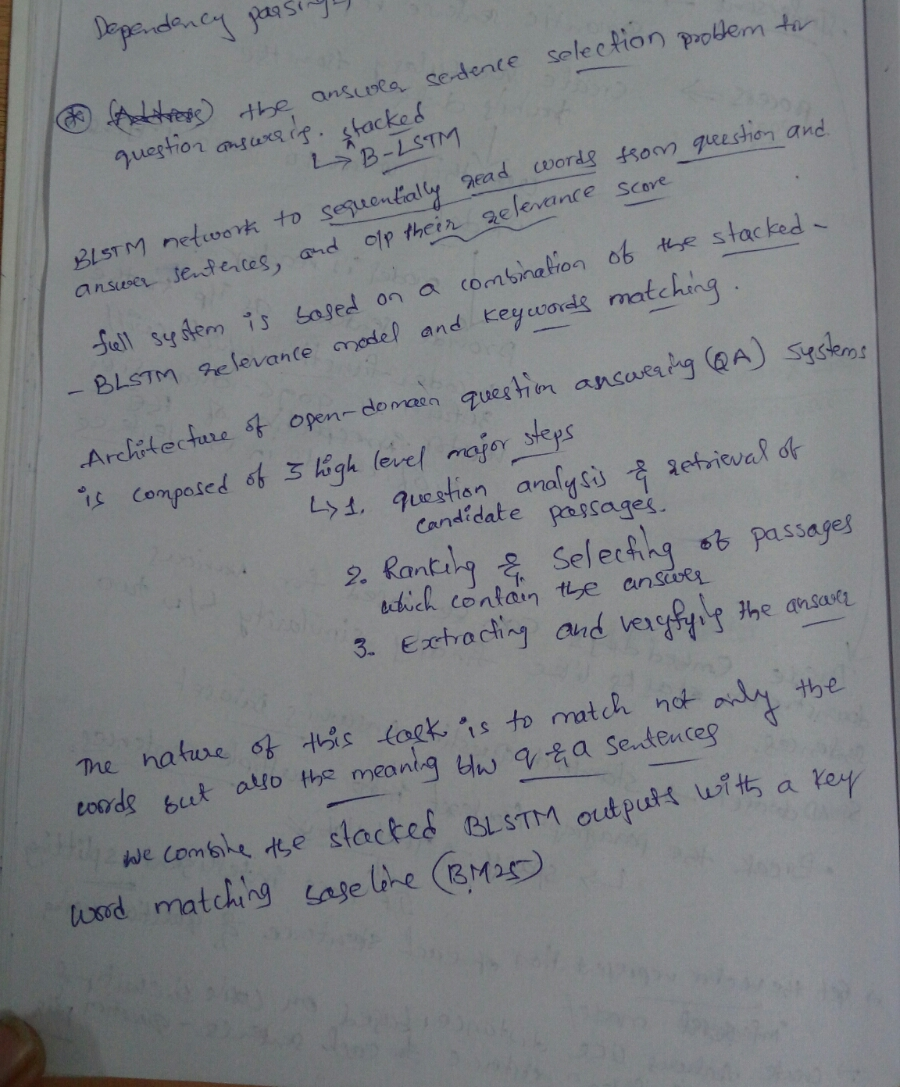 Dependency parsing,
(Address) the answer sentence selection problem for
question answering. stacked
↳ B-LSTM
BLSTM network to sequentially read words from question and
answer sentences, and o/p their relevance score
full system is based on a combination of the stacked -
- BLSTM relevance model and keywords matching.
Architecture of open-domain question answering (QA) systems
is composed of 3 high level major steps
↳ 1. question analysis & retrieval of
candidate passages.
2. Ranking & Selecting of passages
which contain the answer
3. Extracting and veryfyig the answer
The nature of this task is to match not only the
words but also the meaning b/w q & a sentences
we combine the stacked BLSTM outputs with a key
word matching baseline (BM25)